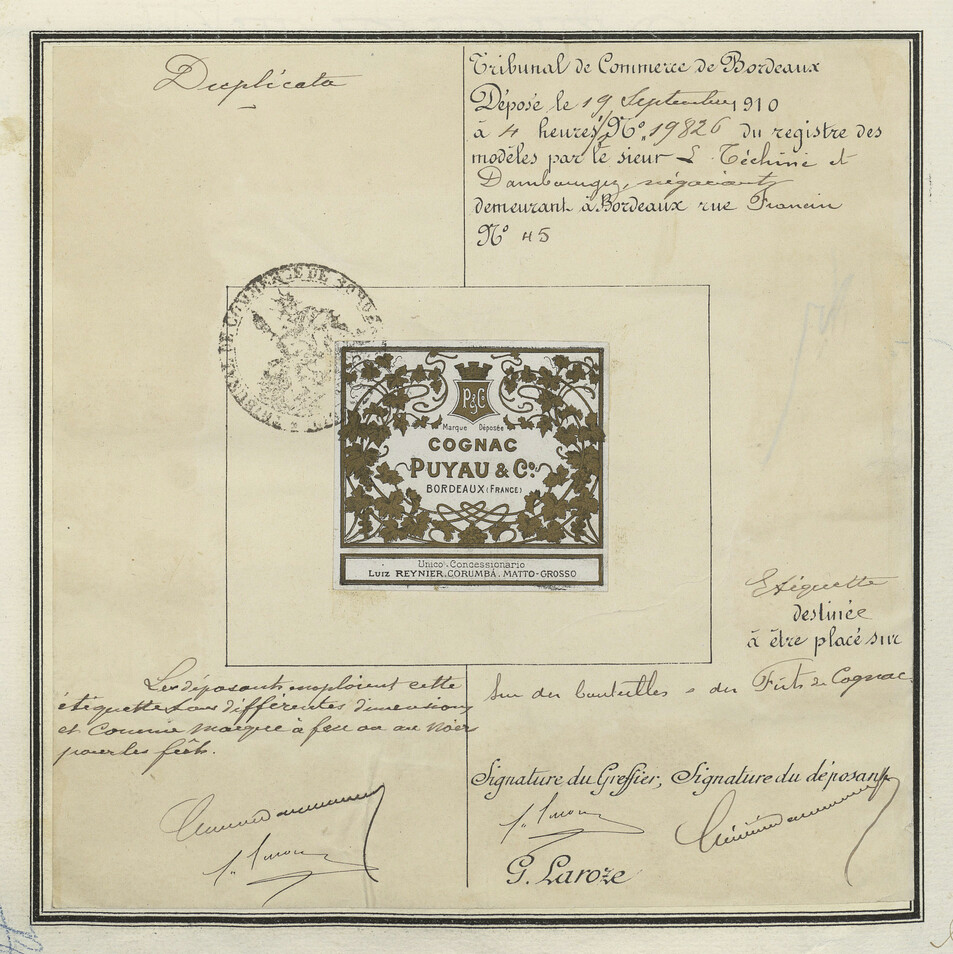 Duplicata
Tribunal de Commerce de Bordeaux
Déposé le 19 Septembre 1910
à 4 heures, No. 19826 du registre des
modèles par le sieur L. Téchiné et
négociants
demeurant à Bordeaux rue Francin
No 45
TRIBUNAL DE COMMERCE DE BORDEAUX
P & Co
Marque Déposée
COGNAC
PUYAU & Co.
BORDEAUX (FRANCE)
Unico Concessionario
LUIZ REYNIER, CORUMBÁ, MATTO-GROSSO
Etiquette
destinée
à être placé sur
Les déposants emploient cette
étiquette sous différentes dimensions
et comme marque à feu ou au noir
pour les fûts.
Sur des bouteilles & des Fûts de Cognac
Signature du Greffier, Signature du déposant
G. Laroze